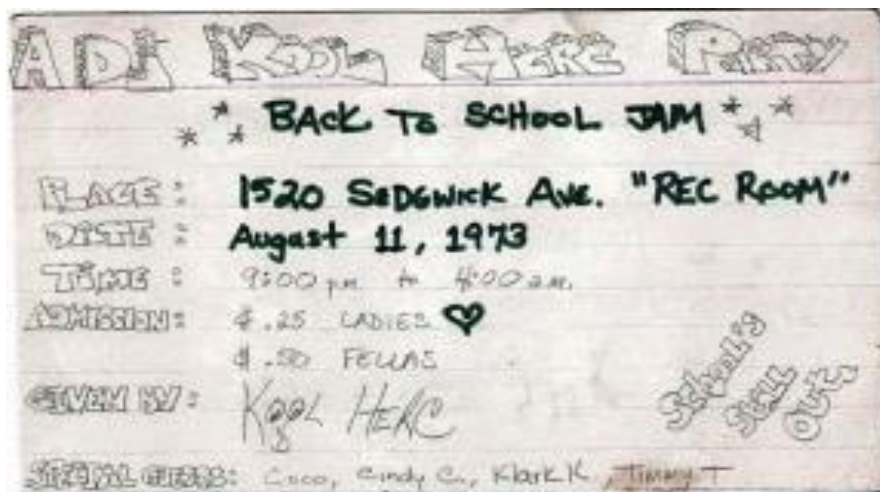 A DJ KOOL HERC PARTY
BACK TO SCHOOL JAM
PLACE: 1520 SEDGWICK AVE. "REC ROOM"
DATE: August 11, 1973
TIME: 9:00 pm to 4:00 am.
ADMISSION: $.25 LADIES ♡
$.50 FELLAS
GIVEN BY: KOOL HERC
SPECIAL GUESTS: Coco, Cindy C., Klark K, Timmy T
School's
Still
Out.